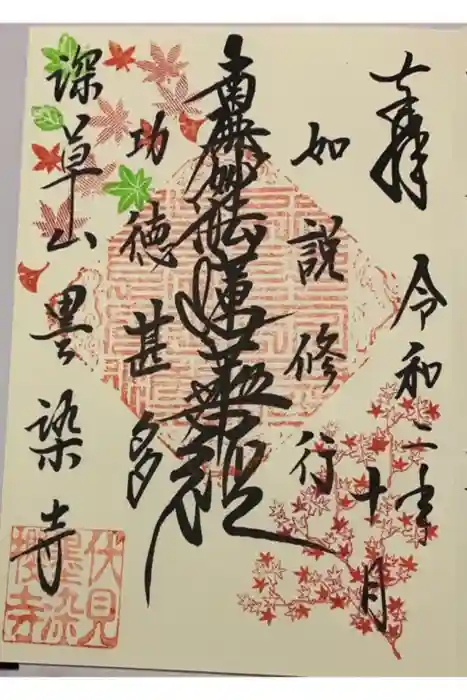 奉拝
令和二年
十月
如説修行
南無妙法蓮華経
功徳甚多
深草山墨染寺
伏見
墨染
櫻寺